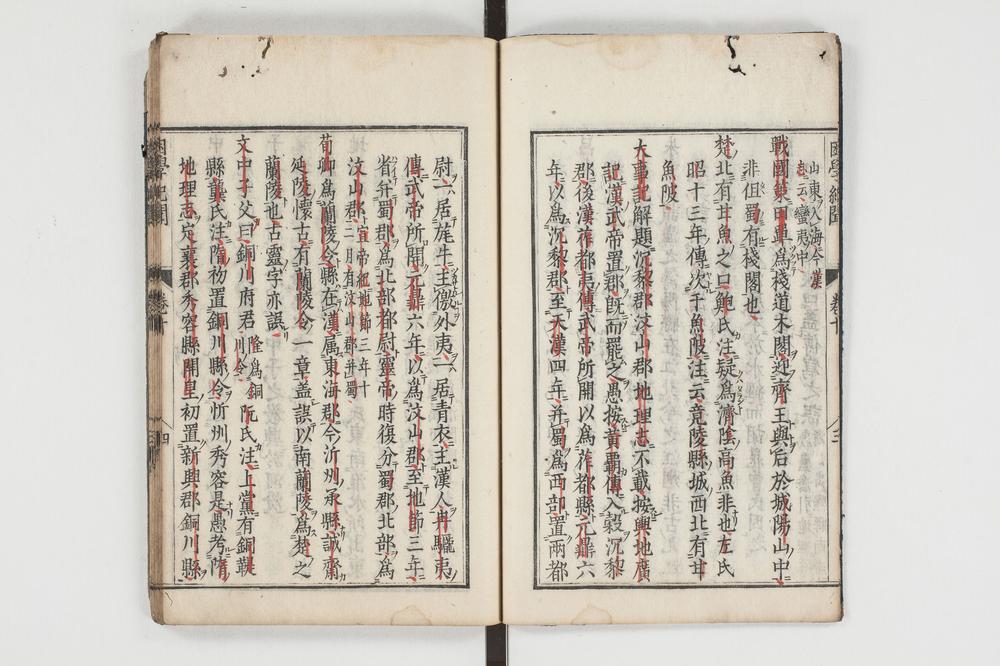 山東入海今漢
志云蠻夷中
戰國策田單為棧道木閣迎齊王與后於城陽山中
非但蜀有棧閣也
楚北有甘魚之口鮑氏注疑為濟陰高魚非也左氏
昭十三年傳次于魚陂注云竟陵縣城西北有甘
魚陂
大事記解題沉黎郡汶山郡地理志不載按輿地廣
記漢武帝置郡既而罷之愚按黃霸傳入穀沉黎
郡後漢莋都夷傳武帝所開以為莋都縣元鼎六
年以為沉黎郡至天漢四年并蜀為西部置兩都
尉一居旄牛主徼外夷一居青衣主漢人冉駹夷
傳武帝所開元鼎六年以為汶山郡至地節三年
省并蜀郡為北部都尉靈帝時復分蜀郡北部為
汶山郡宣帝紀地節三年十二月省汶山郡并蜀
荀卿為蘭陵令縣在漢屬東海郡今沂州承縣誠齋
延陵懷古有蘭陵令一章蓋誤以南蘭陵為楚之
蘭陵也古靈字亦誤
文中子父曰銅川府君隆為銅川令阮氏注上黨有銅鞮
縣龔氏注隋初置銅川縣今忻州秀容是愚考隋
地理志定襄郡秀容縣開皇初置新興郡銅川縣
困學紀聞
卷十
三
困學紀聞
卷十
四